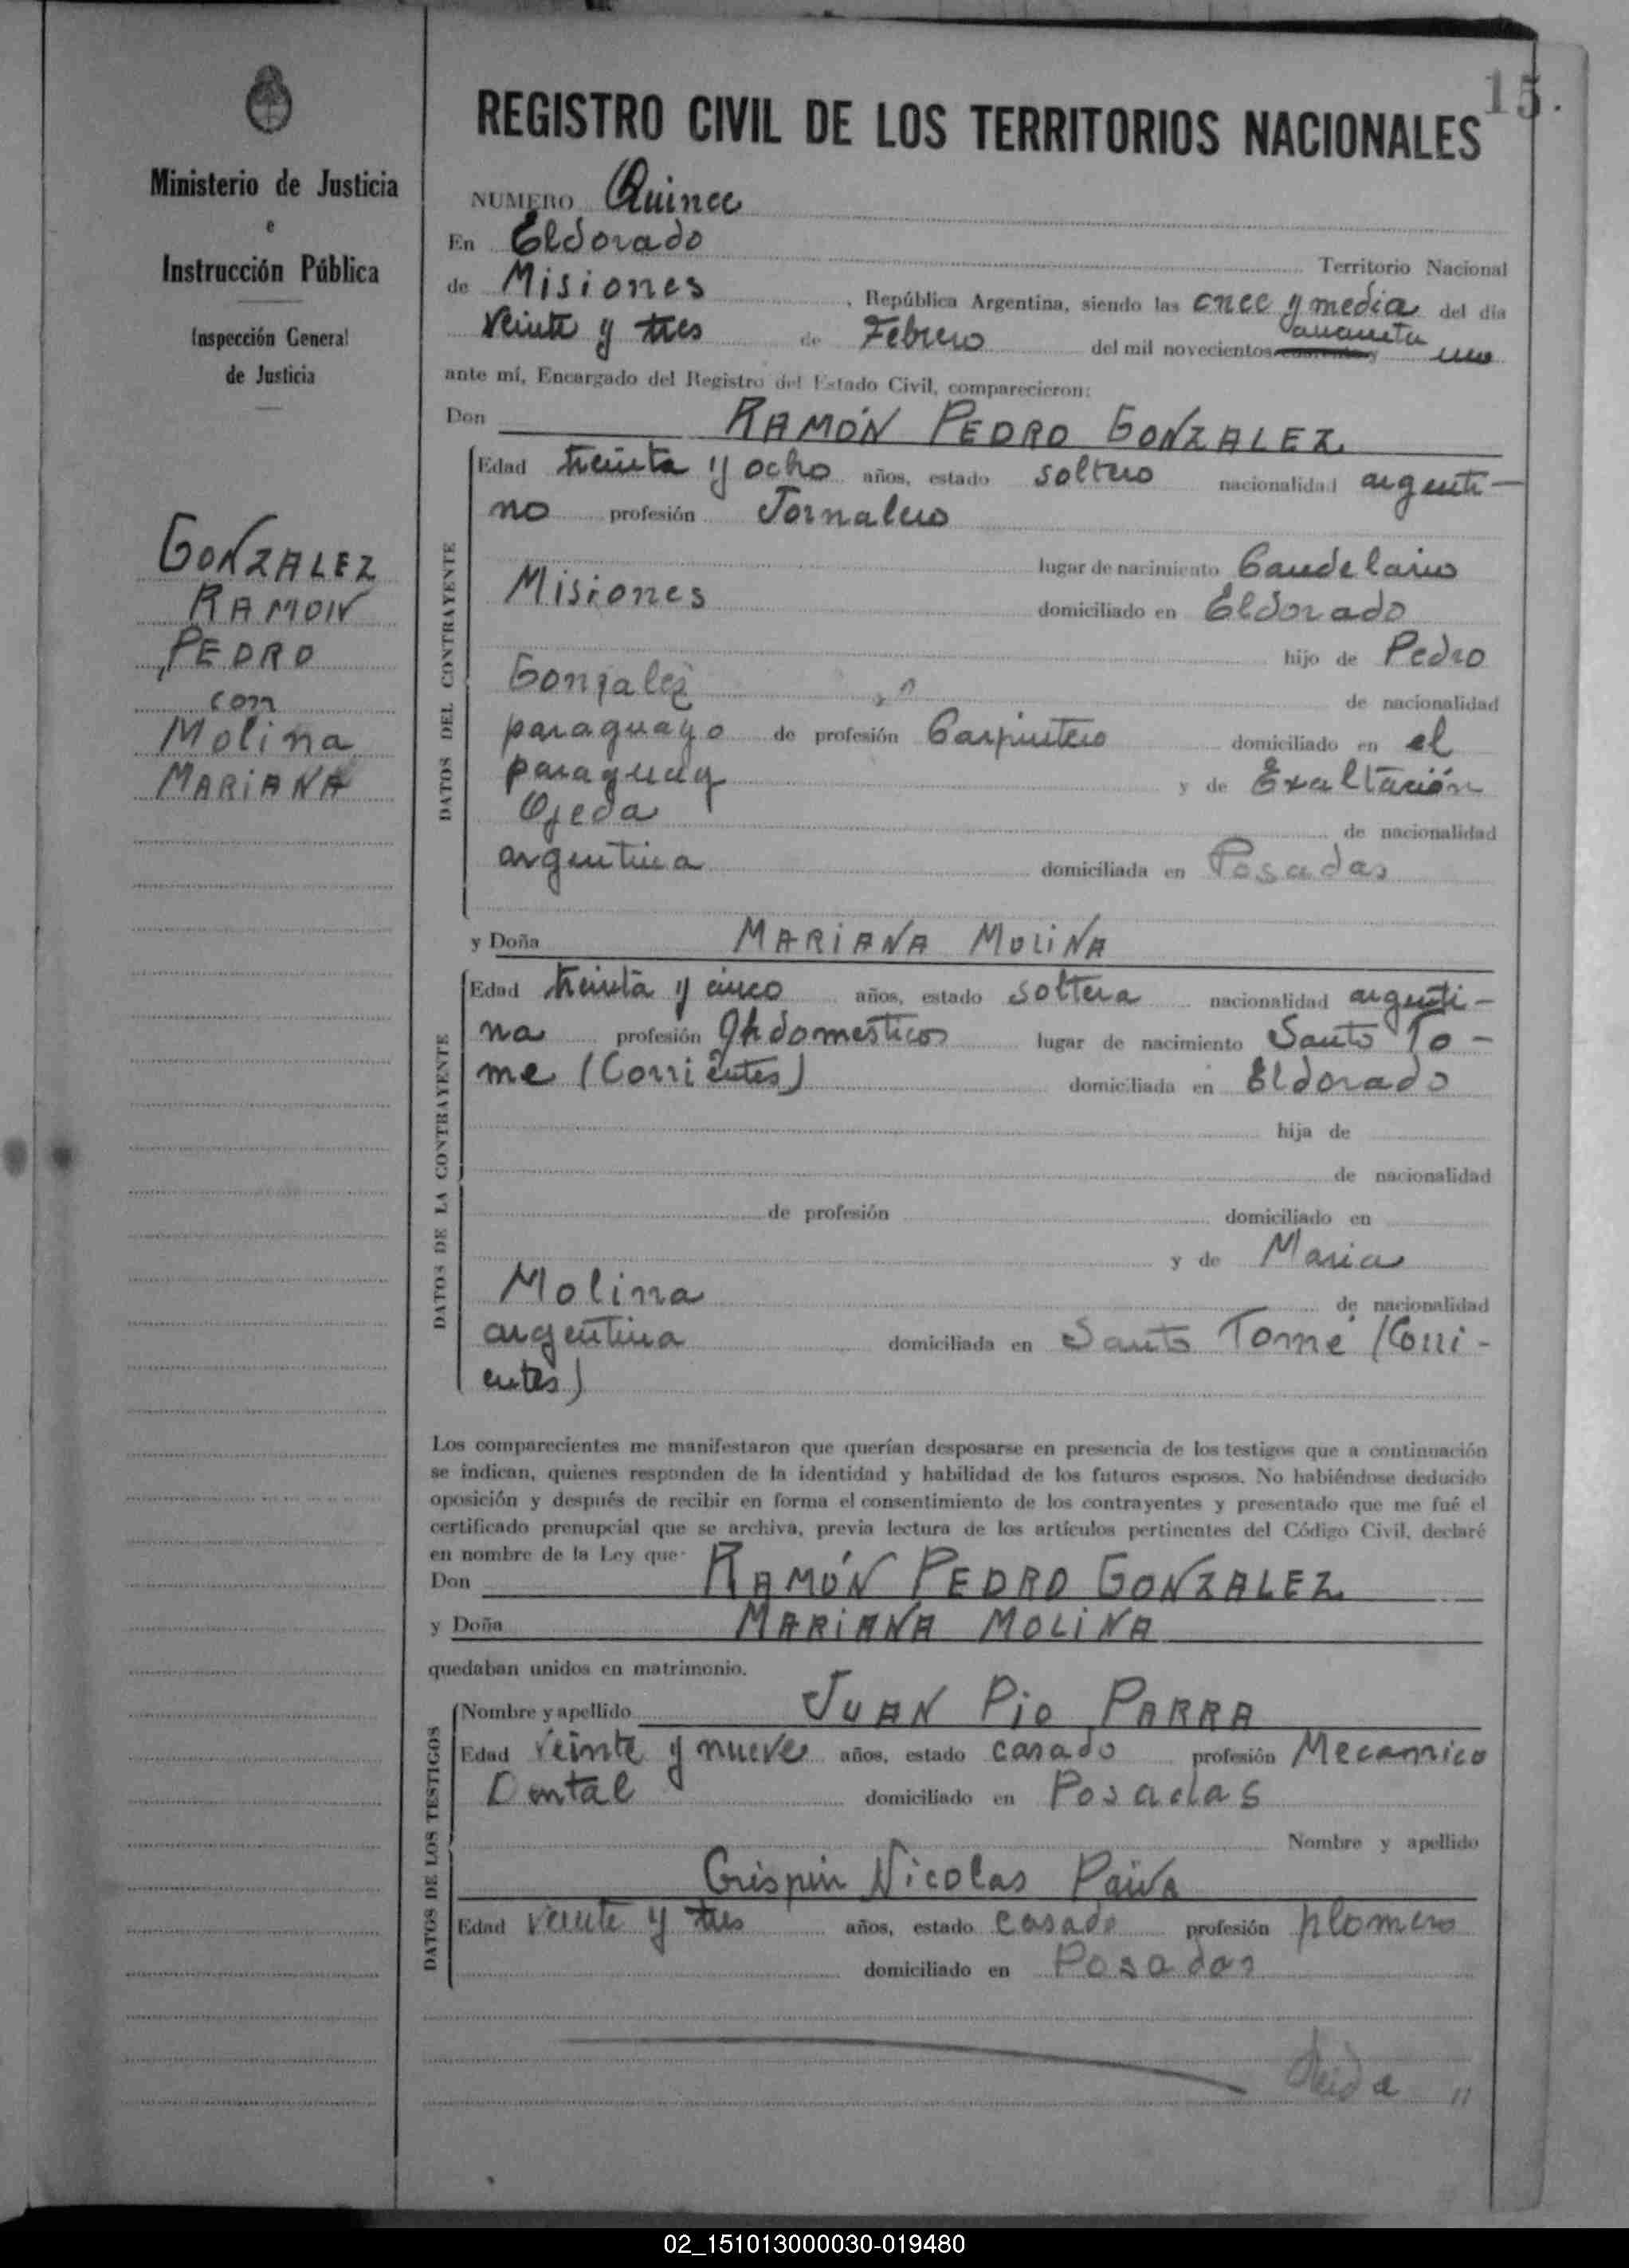 15.
Ministerio de Justicia
e
Instrucción Pública
Inspección General
de Justicia
GONZALEZ
RAMON
PEDRO
con
Molina
MARIANA
REGISTRO CIVIL DE LOS TERRITORIOS NACIONALES
NUMERO Quince
En Eldorado Territorio Nacional
de Misiones, República Argentina, siendo las once y media del día
veinte y tres de Febrero del mil novecientos cuarenta uno
ante mí, Encargado del Registro del Estado Civil, comparecieron:
Don RAMÓN PEDRO GONZALEZ
DATOS DEL CONTRAYENTE
Edad treinta y ocho años, estado soltero nacionalidad argenti-
no profesión Jornalero
lugar de nacimiento Candelaria
Misiones domiciliado en Eldorado
hijo de Pedro
Gonzalez de nacionalidad
paraguayo de profesión Carpintero domiciliado en el
paraguay y de Exaltación
Ojeda de nacionalidad
argentina domiciliada en Posadas
y Doña MARIANA MOLINA
DATOS DE LA CONTRAYENTE
Edad treinta y cinco años, estado soltera nacionalidad argenti-
na profesión domesticos lugar de nacimiento Santo To-
me (Corrientes) domiciliada en Eldorado
hija de
de nacionalidad
de profesión domiciliado en
y de Maria
Molina de nacionalidad
argentina domiciliada en Santo Tomé (Corri-
entes)
Los comparecientes me manifestaron que querían desposarse en presencia de los testigos que a continuación
se indican, quienes responden de la identidad y habilidad de los futuros esposos. No habiéndose deducido
oposición y después de recibir en forma el consentimiento de los contrayentes y presentado que me fué el
certificado prenupcial que se archiva, previa lectura de los artículos pertinentes del Código Civil, declaré
en nombre de la Ley que:
Don RAMÓN PEDRO GONZALEZ
y Doña MARIANA MOLINA
quedaban unidos en matrimonio.
DATOS DE LOS TESTIGOS
Nombre y apellido JUAN PIO PARRA
Edad veinte y nueve años, estado casado profesión Mecanico
Dental domiciliado en Posadas
Nombre y apellido
Crispin Nicolas Paiva
Edad veinte y tres años, estado casado profesión plomero
domiciliado en Posadas
02_151013000030-019480